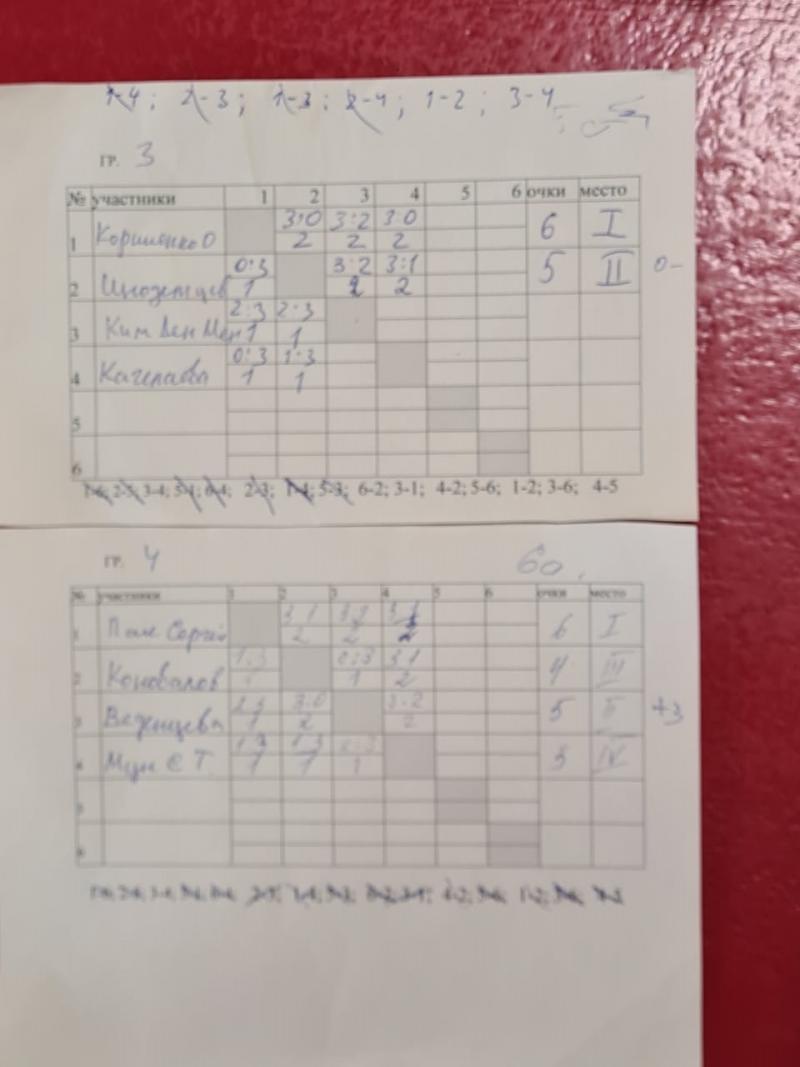 1-4; 2-3; 1-3; 2-4; 1-2; 3-4
ГР. 3
№ участники 1 2 3 4 5 6 очки место
3:0 3:2 3:0
1 Коршенко О 2 2 2 6 I
0:3 3:2 3:1
2 Иноземцев 1 2 2 5 II 0-
2:3 2:3
3 Ким Вен Мен 1 1
0:3 1:3
4 1 1
5
6
1-6; 2-5; 3-4; 5-1; 6-4; 2-3; 1-4; 5-3; 6-2; 3-1; 4-2; 5-6; 1-2; 3-6; 4-5
ГР. 4 60
№ участники 1 2 3 4 5 6 очки место
3:1 3:2 3:1
1 Пак Сергей 2 2 2 6 I
1:3 0:3 3:1
2 Коновалов 1 1 2 4 III
2:3 3:0 3:2
3 Веденцева 1 2 2 5 II +3
1:3 1:3 2:3
4 Мун Е Т. 1 1 1 3 IV
5
6